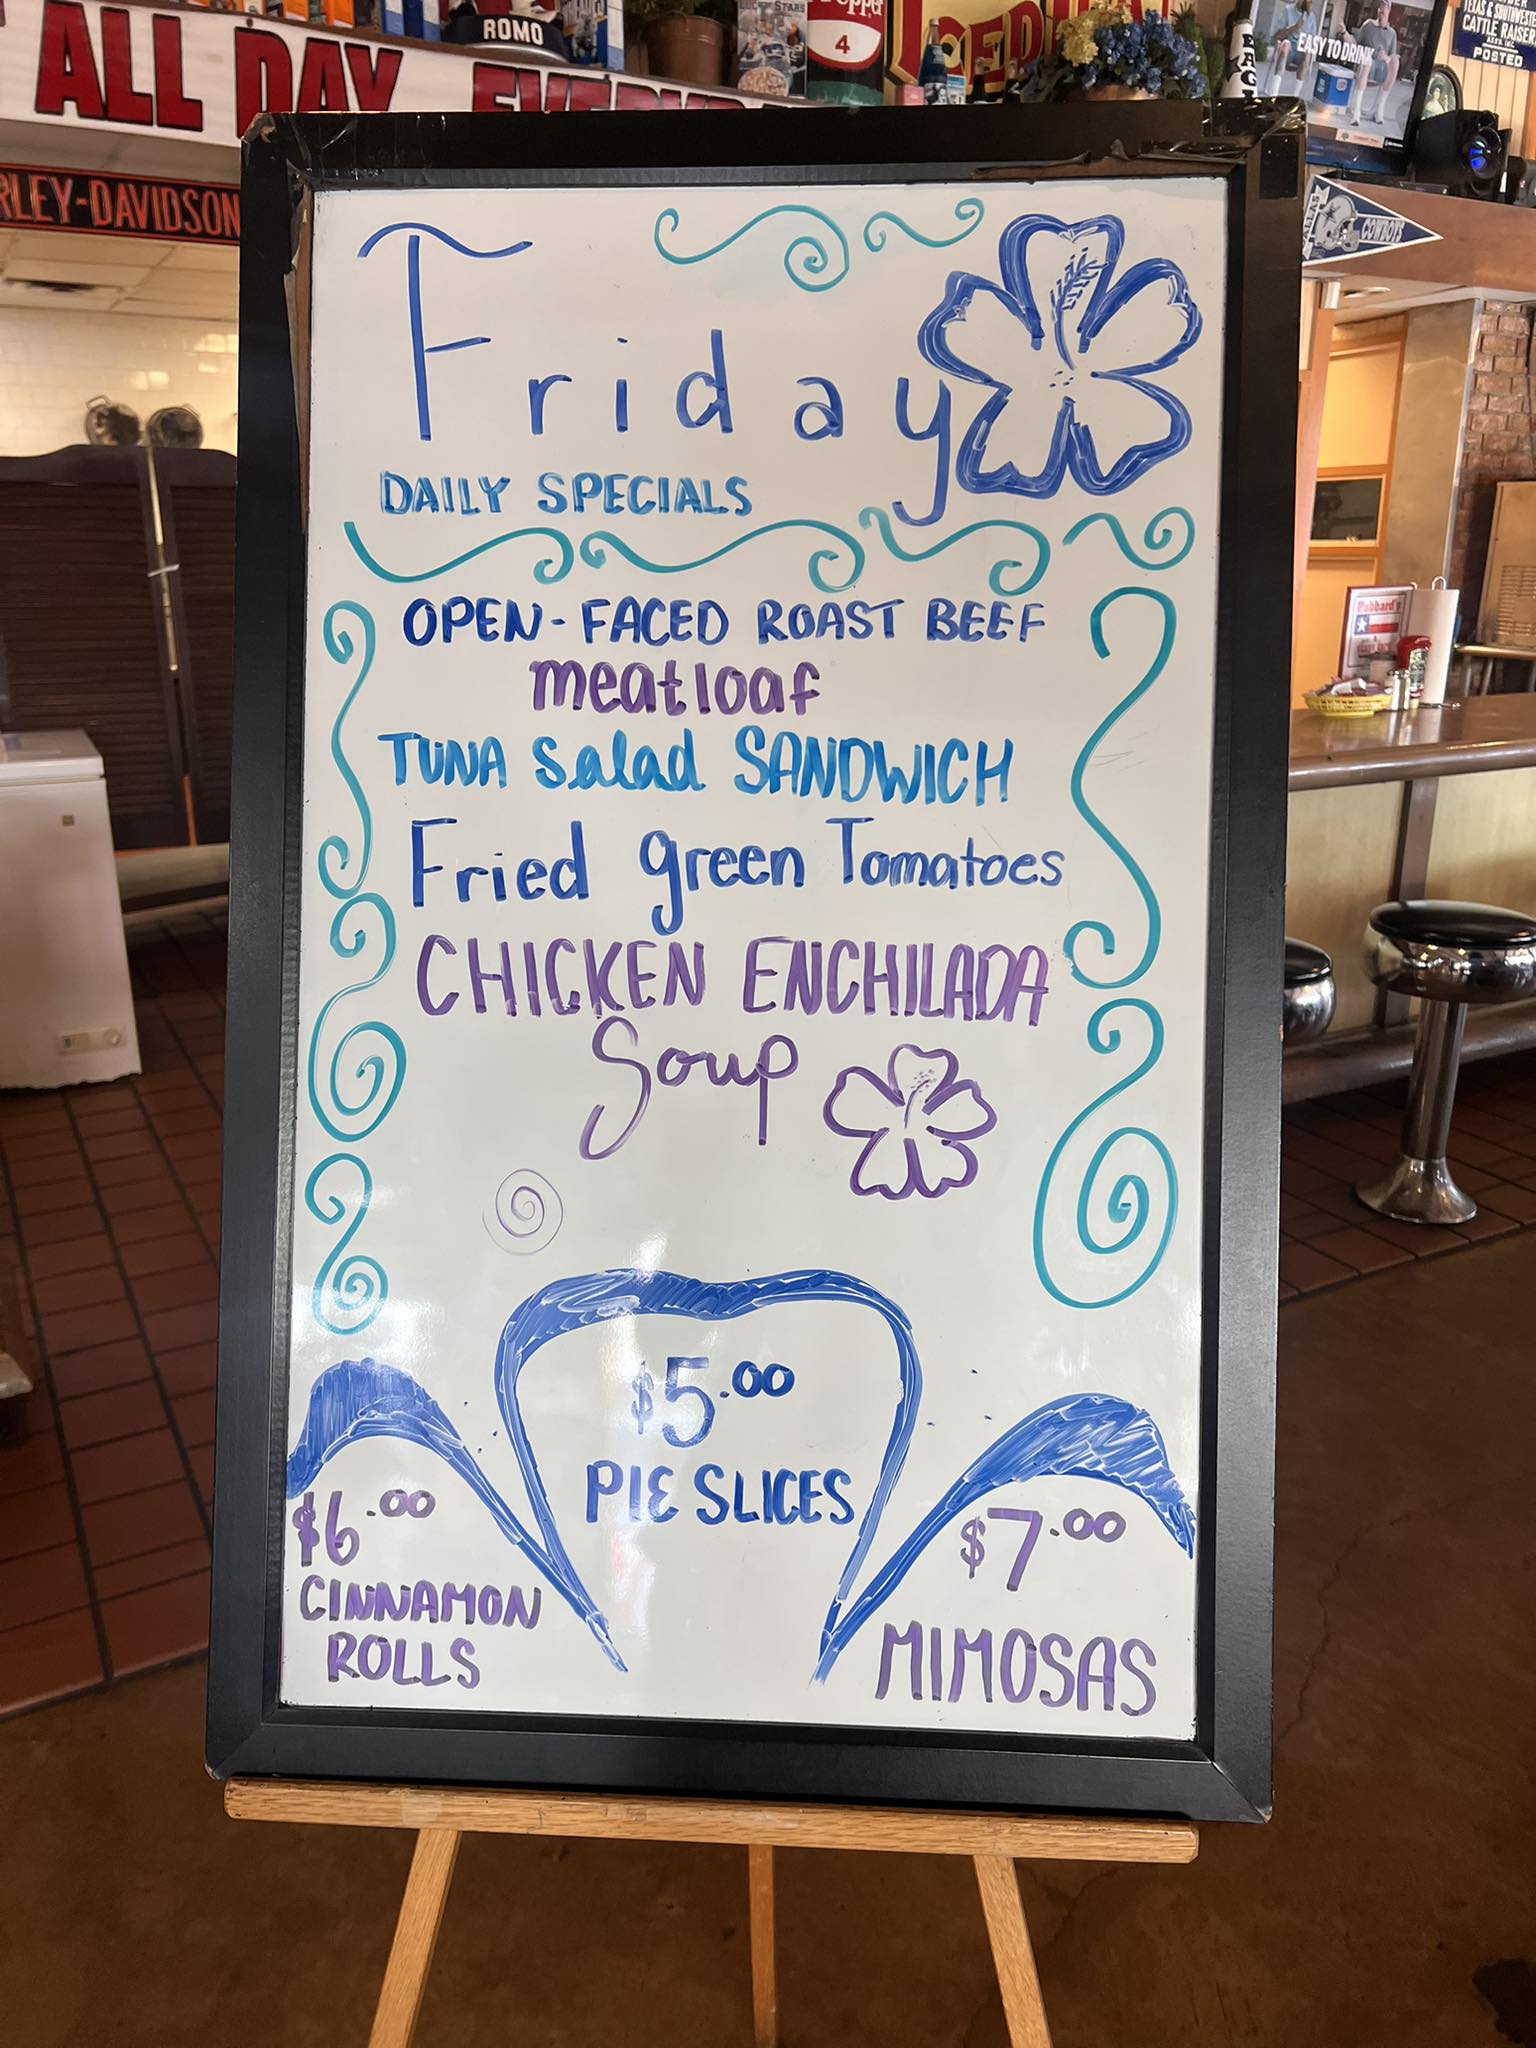 ROMO
4
ALL DAY
EASY TO DRINK
TEXAS & SOUTHWESTERN
CATTLE RAISERS
POSTED
HARLEY-DAVIDSON
COWBOYS
Friday
DAILY SPECIALS
OPEN-FACED ROAST BEEF
meatloaf
TUNA Salad SANDWICH
Fried green Tomatoes
CHICKEN ENCHILADA
Soup
$5.00
PIE SLICES
$6.00
CINNAMON
ROLLS
$7.00
MIMOSAS